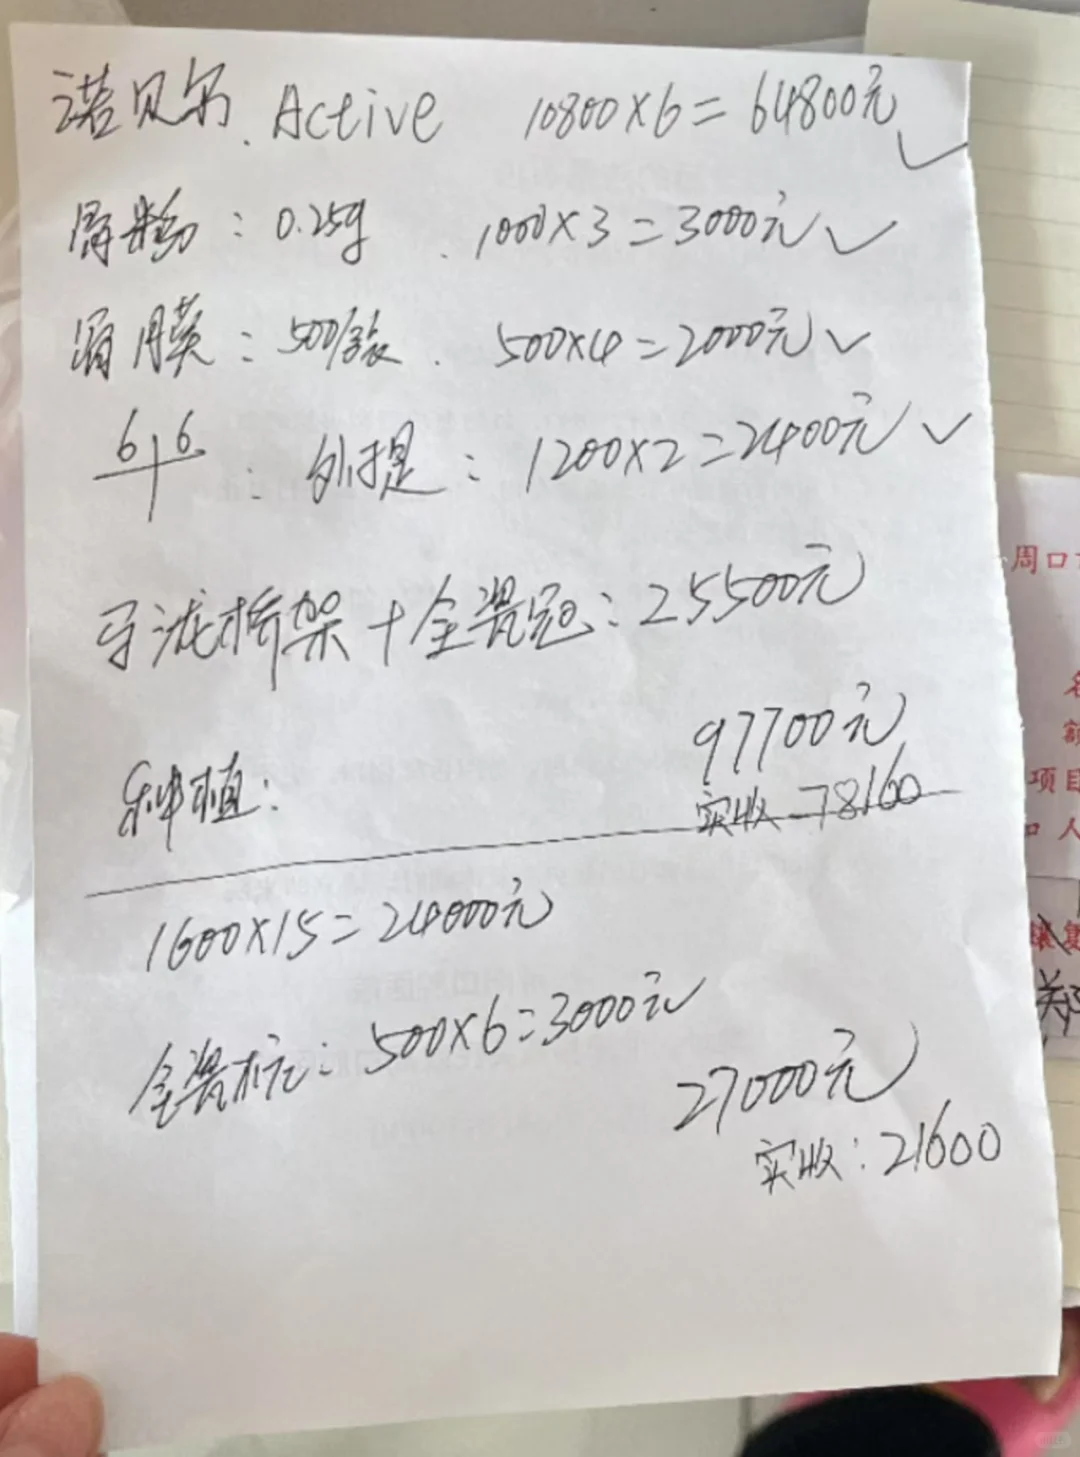 诺贝尔. Active 10800×6=64800元
骨粉: 0.25g . 1000×3=3000元
骨膜: 500/张 . 500×4=2000元
6|6 : 外提: 1200×2=2400元
马泷桥架+全瓷冠: 25500元
97700元
种植:
实收 78160
1600×15=24000元
全瓷桩: 500×6=3000元
27000元
实收: 21600
周口
名
额
项目
人
镶复